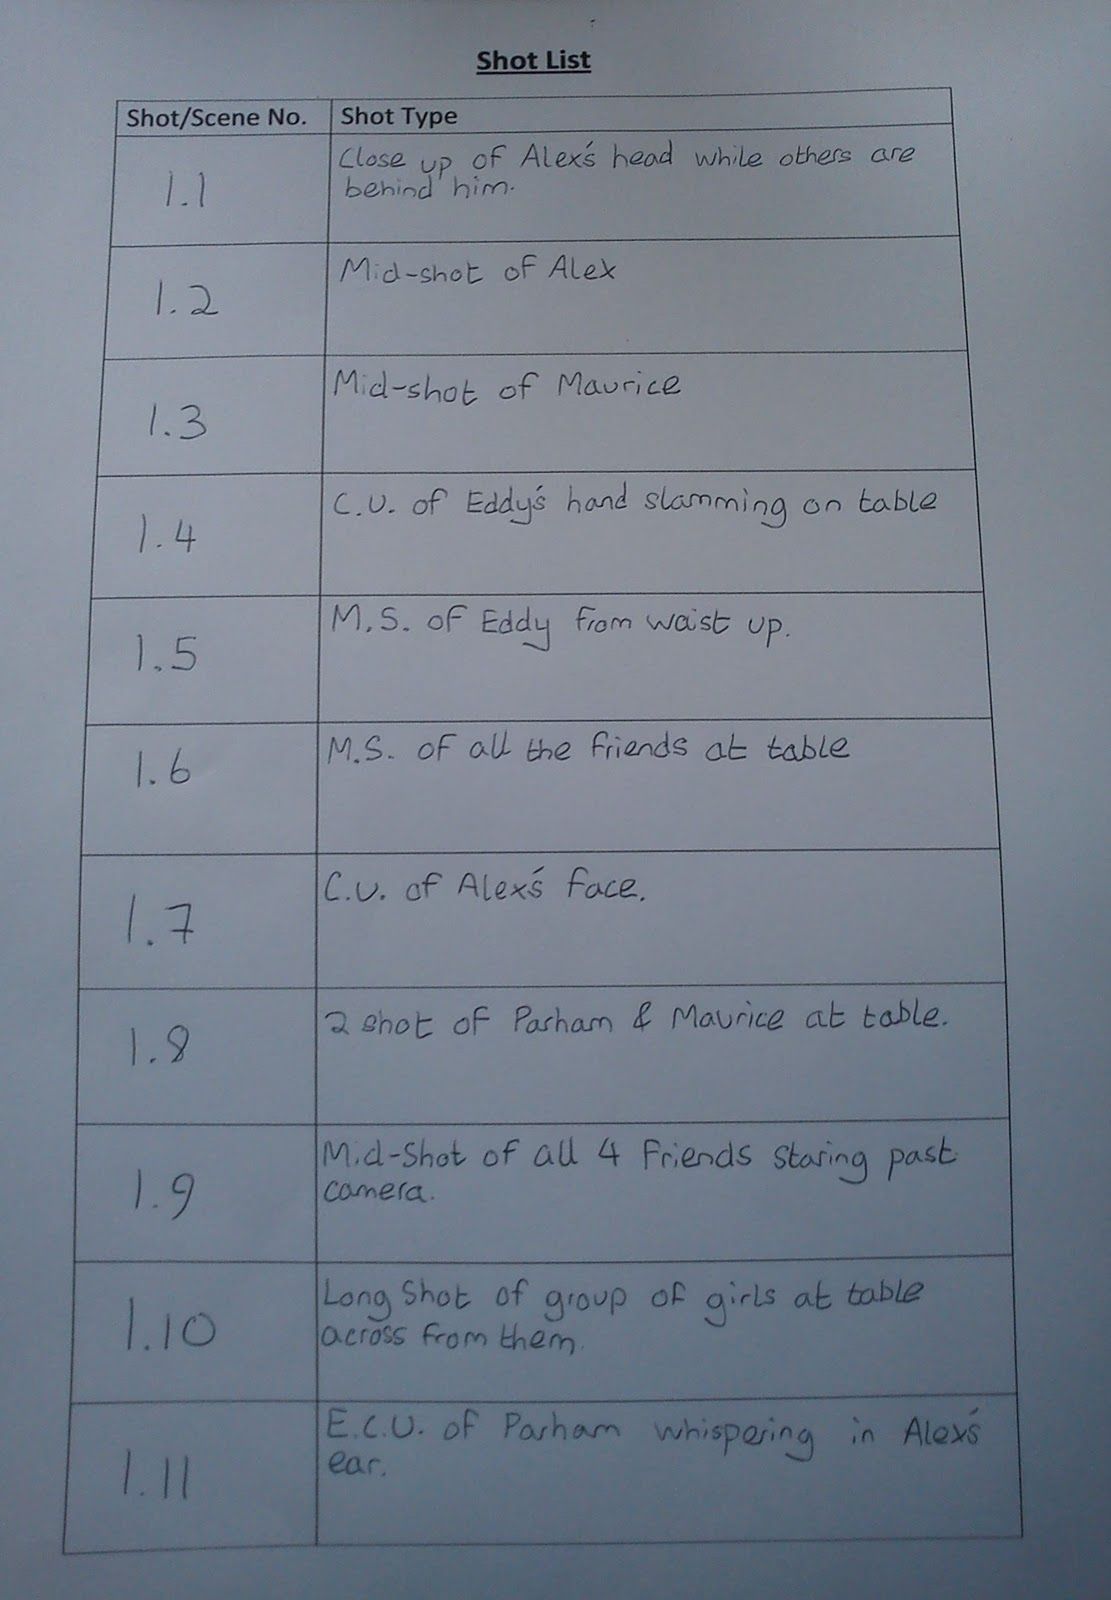 Shot List
Shot/Scene No. Shot Type
1.1 Close up of Alex's head while others are
behind him.
1.2 Mid-shot of Alex
1.3 Mid-shot of Maurice
1.4 C.U. of Eddy's hand slamming on table
1.5 M.S. of Eddy from waist up.
1.6 M.S. of all the friends at table
1.7 C.U. of Alex's face.
1.8 2 shot of Parham & Maurice at table.
1.9 Mid-Shot of all 4 friends staring past
camera.
1.10 Long Shot of group of girls at table
across from them.
1.11 E.C.U. of Parham whispering in Alex's
ear.